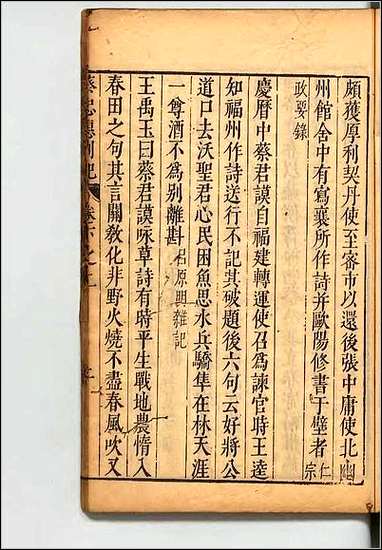 頗獲厚利契丹使至密市以還後張中庸使北幽
州館舍中有寫襄所作詩并歐陽修書于壁者仁宗
政要錄
慶曆中蔡君謨自福建轉運使召爲諫官時王逵
知福州作詩送行不記其破題後六句云好將公
道口去沃聖君心民困魚思水兵驕隼在林天涯
一尊酒不爲别離斟呂原興雜記
王禹玉曰蔡君謨咏草詩有時平生戰地農惰入
春田之句其言關敎化非野火燒不盡春風吹又
蔡忠惠别紀 卷下之上